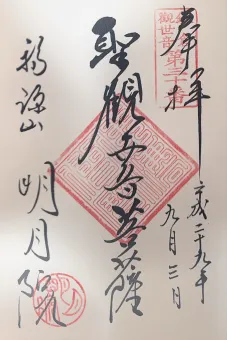 奉拝
平成二十九年
九月三日
聖観世音菩薩
福源山
明月院
観世音第三十番